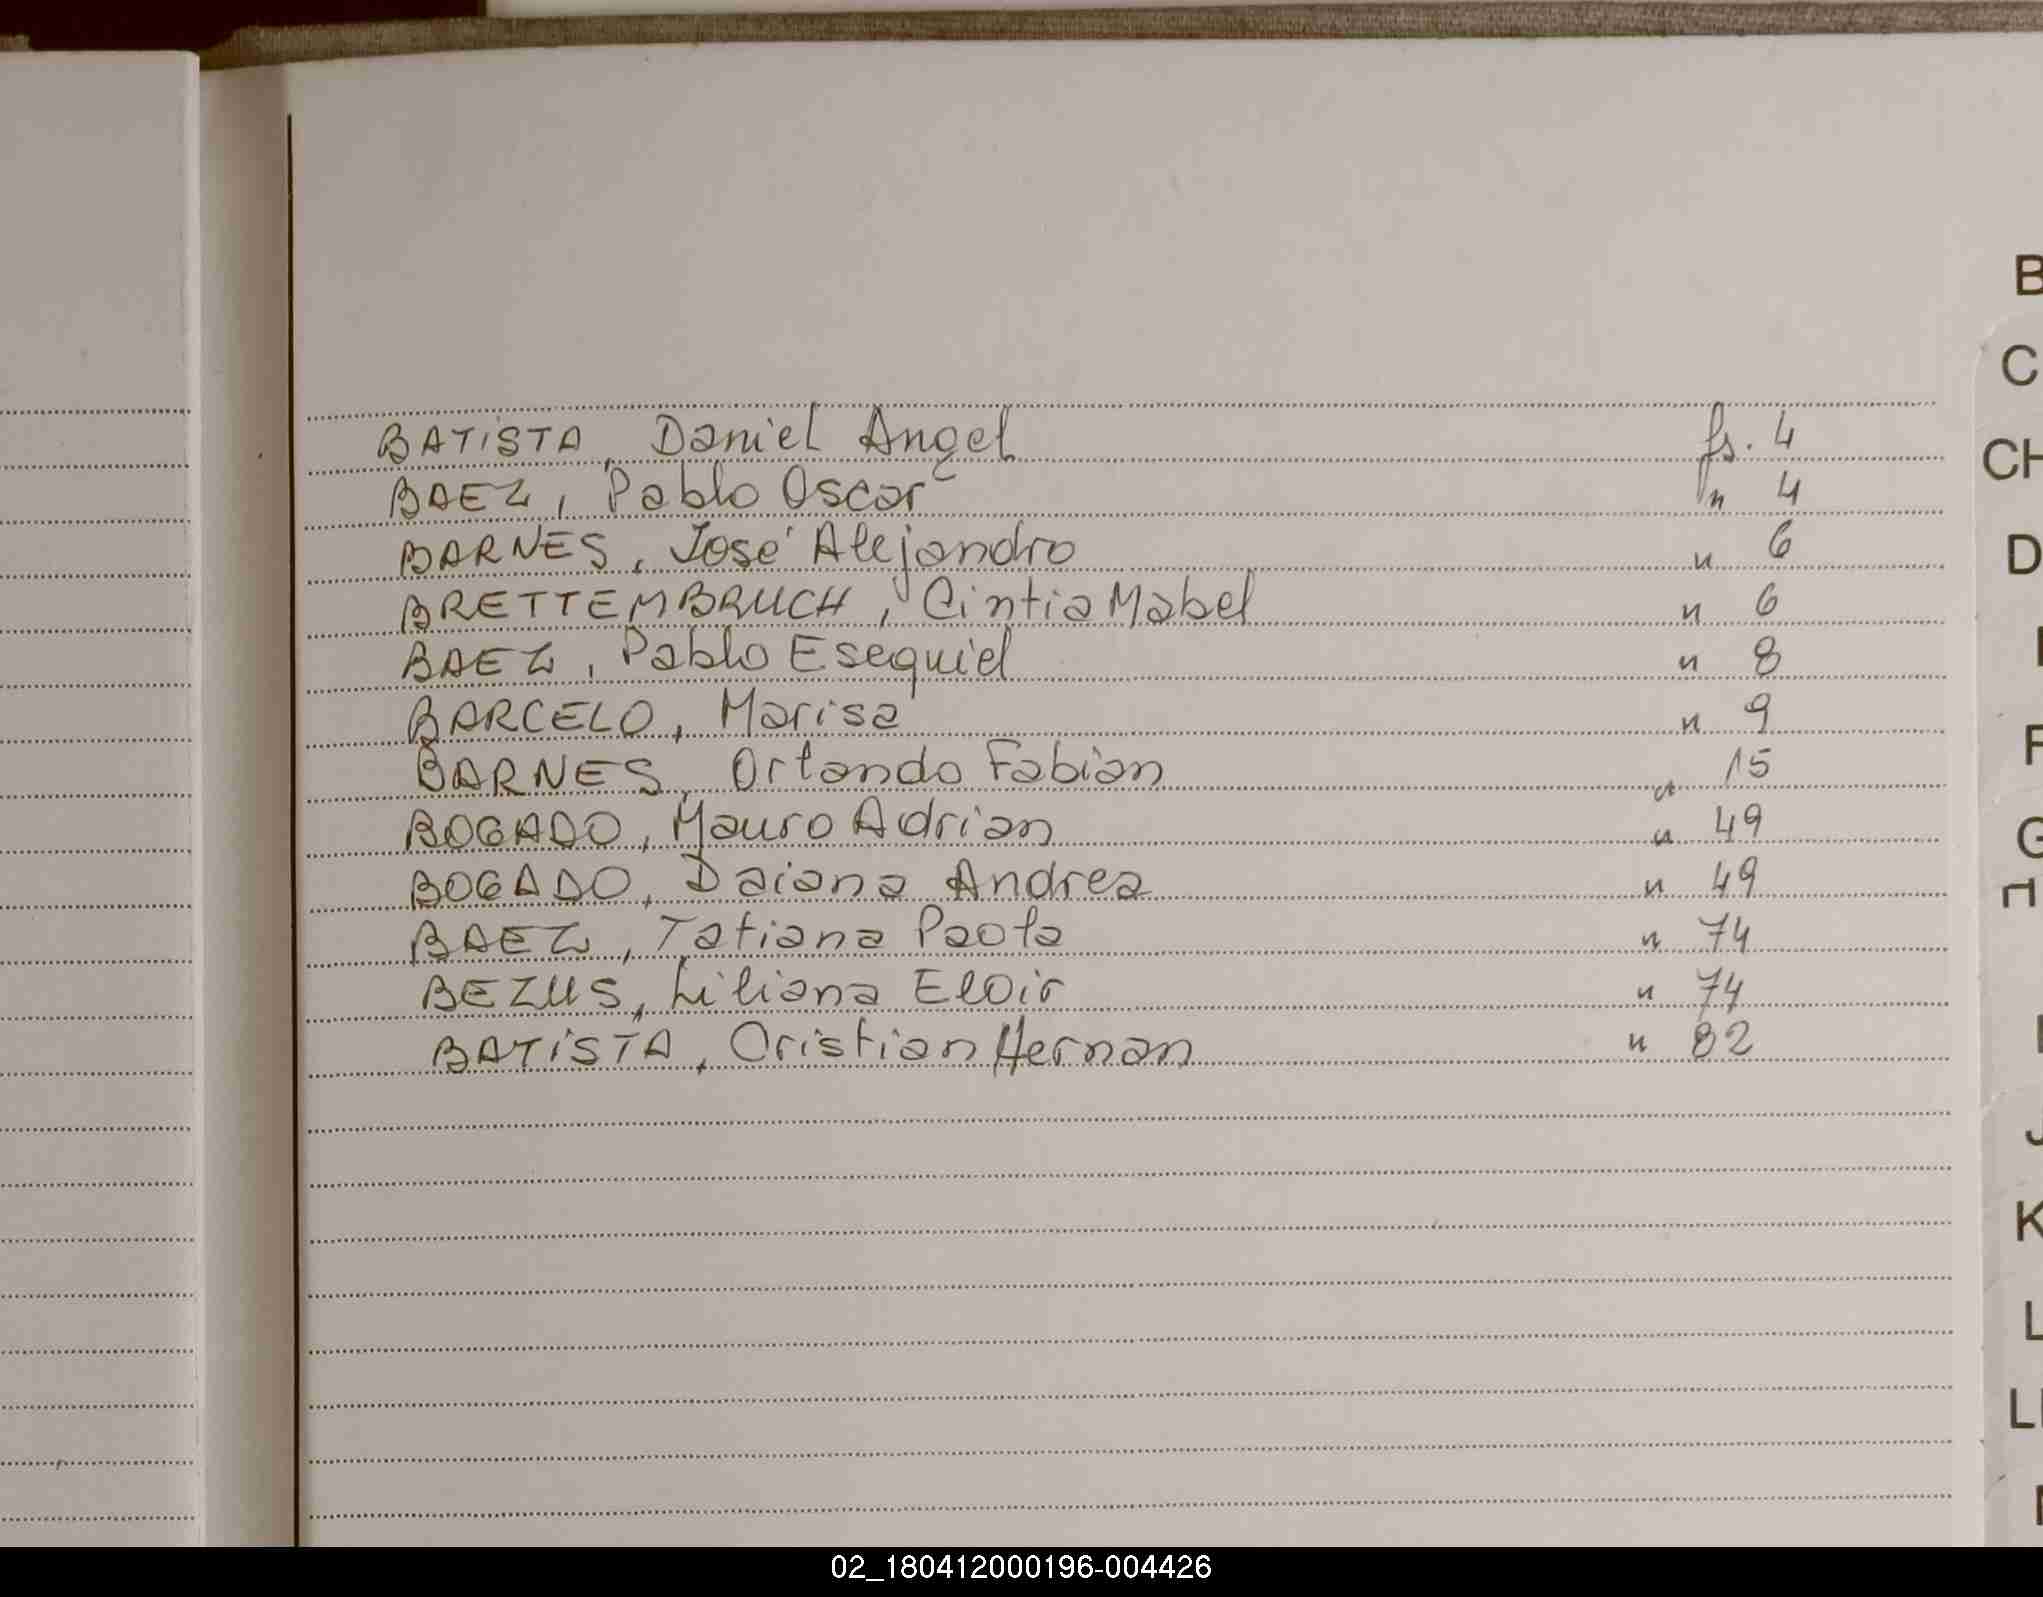 BATISTA, Daniel Angel fs. 4
BAEZ, Pablo Oscar " 4
BARNES, José Alejandro " 6
BRETTEMBRUCH, Cintia Mabel " 6
BAEZ, Pablo Esequiel " 8
BARCELO, Marisa " 9
BARNES, Orlando Fabian " 15
BOGADO, Mauro Adrian " 49
BOGADO, Daiana Andrea " 49
BAEZ, Tatiana Paola " 74
BEZUS, Liliana Eloir " 74
BATISTA, Cristian Hernan " 82
B
C
CH
D
F
G
J
K
L
02_180412000196-004426